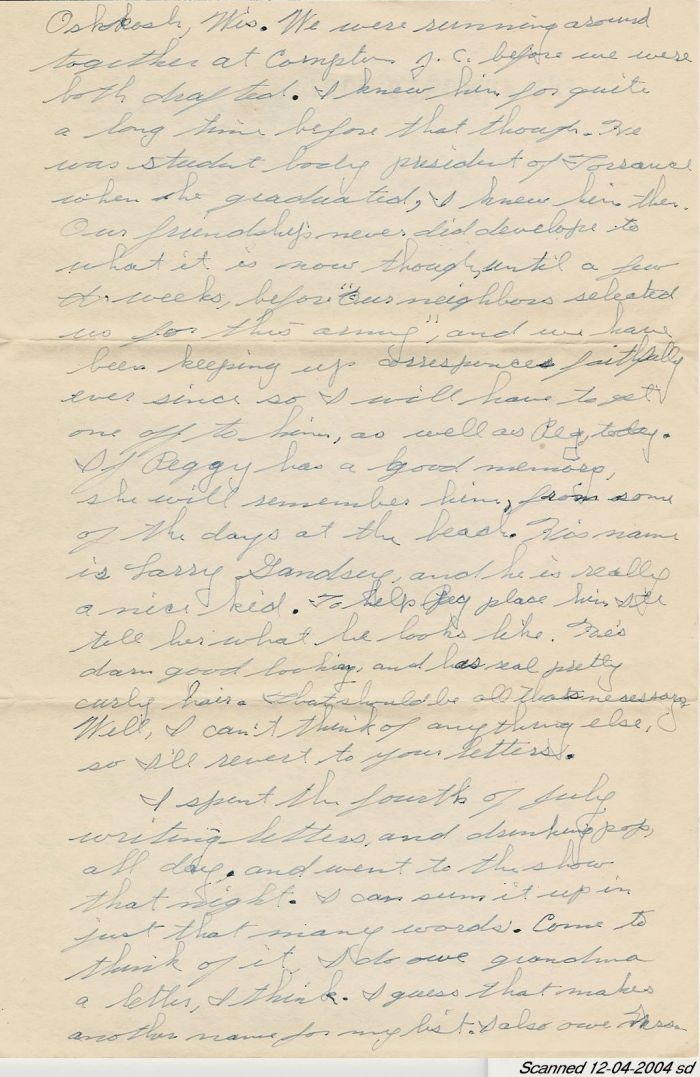 Oskkosh, Wis. We were running around
together at Compton J.C. before we were
both drafted. I knew him for quite
a long time before that though. He
was student body president of Torrance
when he graduated, I knew him then.
Our friendship never did develope to
what it is now though, until a few
weeks, before "our neighbors selected
us for this army", and we have
been keeping up correspences faithfully
ever since so I will have to get
one off to him, as well as Peg, today.
If Peggy has a good memory,
she will remember him, from some
of the days at the beach. His name
is Larry and he is really
a nice kid. To help Peg place him I'll
tell her what he looks like. He's
darn good looking, and has real pretty
curly hair. That should be all thats necessary
Well, I can't think of anything else,
so I'll revert to your letters.
I spent the fourth of July
writing letters, and drinking pop,
all day, and went to the show
that night. I can sum it up in
just that many words. Come to
think of it, I do owe grandma
a letter, I think. I guess that makes
another name for my list. I also owe
Scanned 12-04-2004 sd